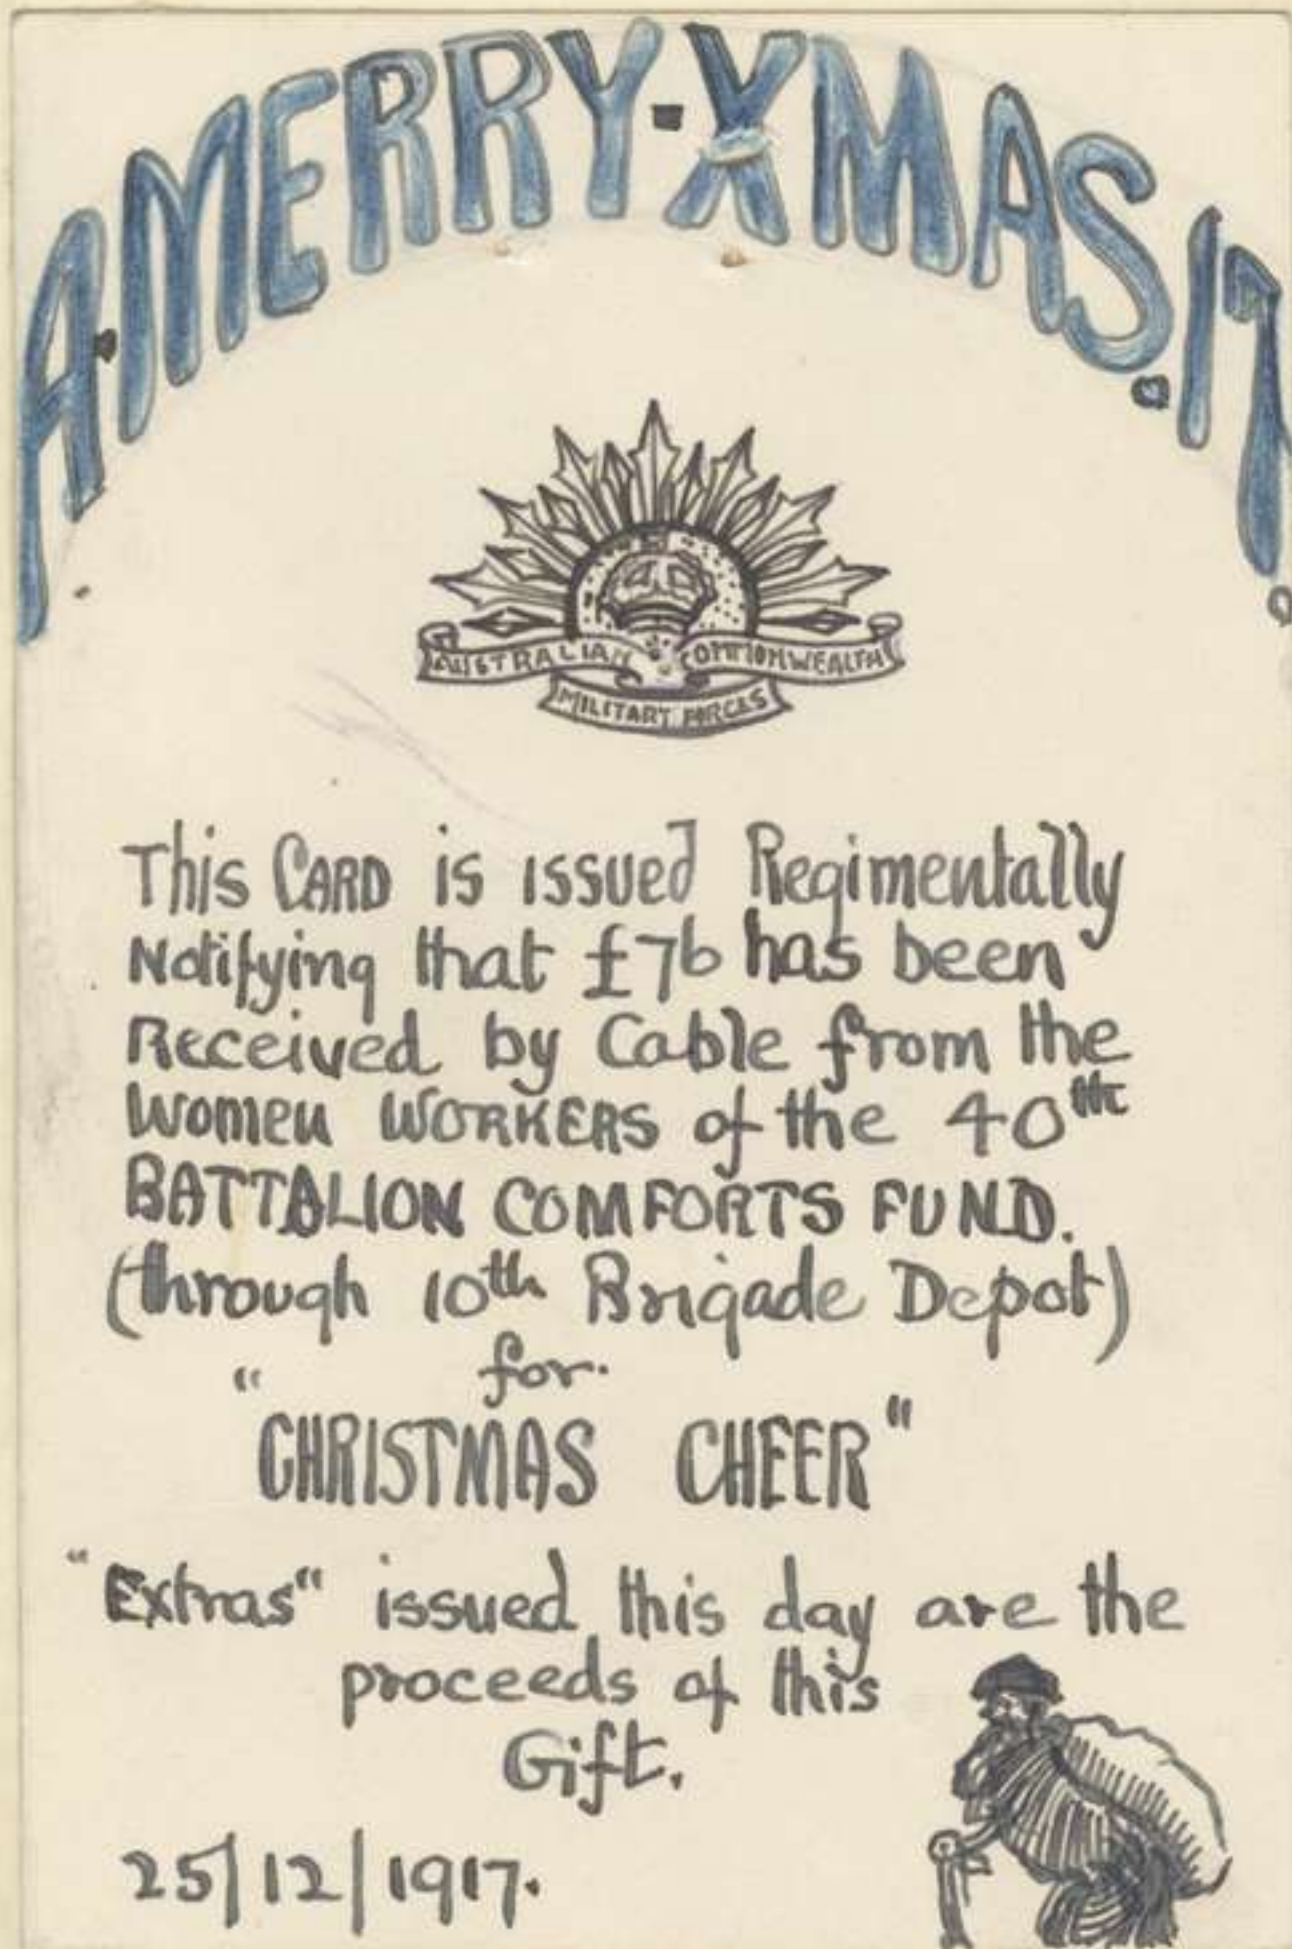 A·MERRY·XMAS·17.
AUSTRALIAN COMMONWEALTH
MILITARY FORCES
This CARD is issued Regimentally
Notifying that £76 has been
Received by Cable from the
Women WORKERS of the 40th
BATTALION COMFORTS FUND.
(through 10th Brigade Depot)
for.
"CHRISTMAS CHEER"
"Extras" issued this day are the
proceeds of this
Gift.
25/12/1917.